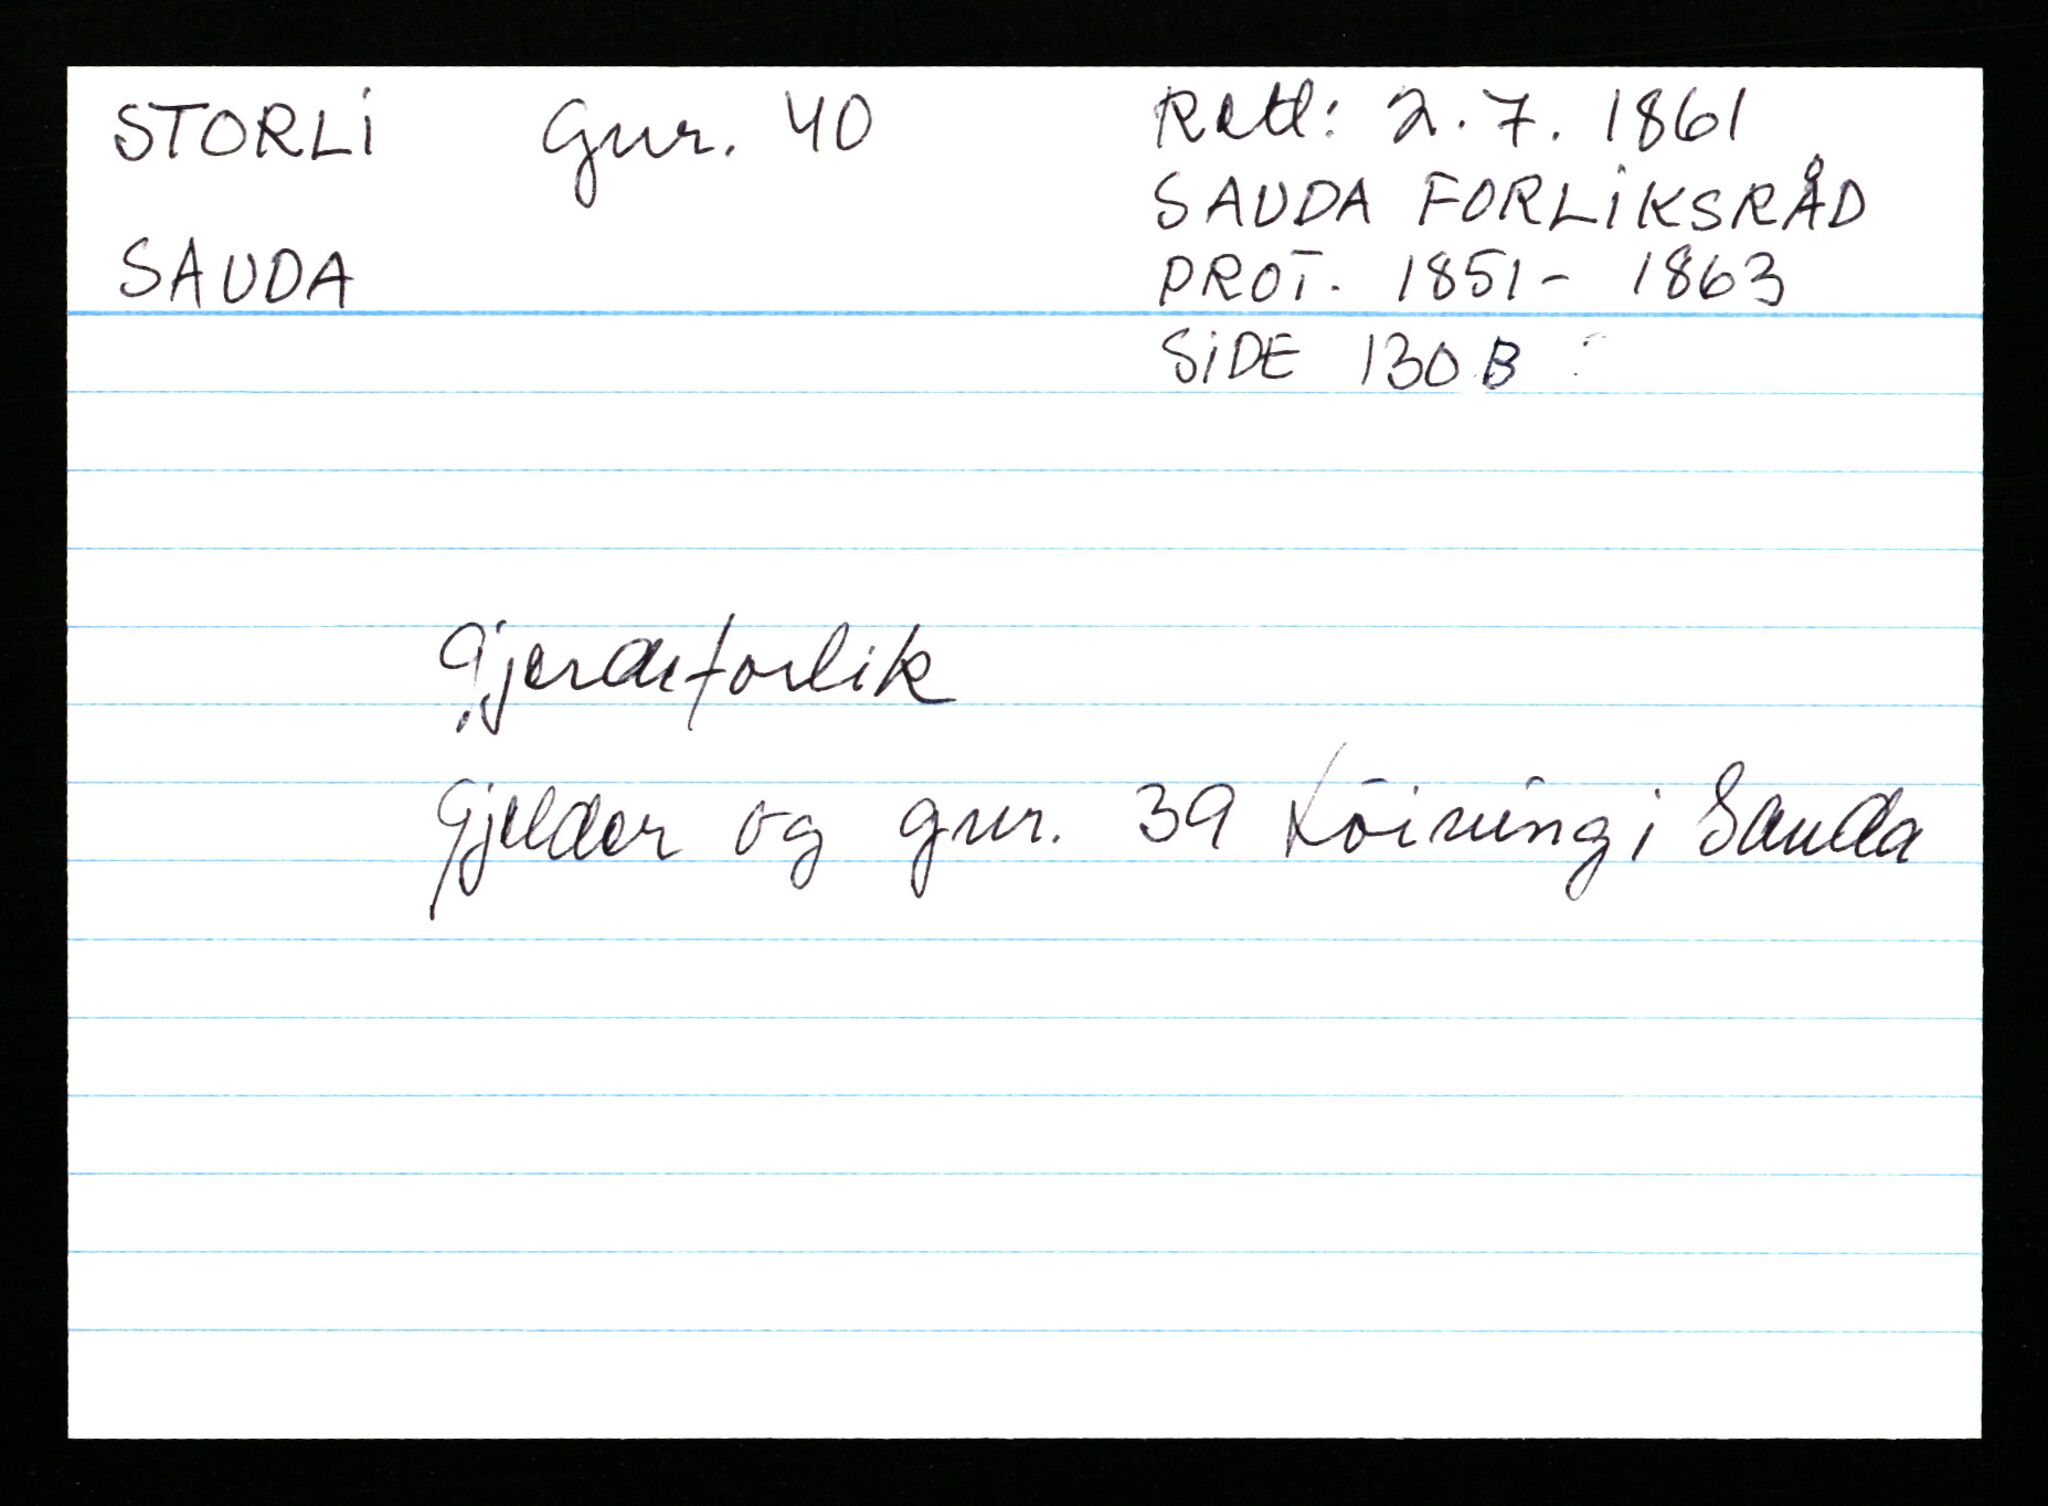 STORLI Gnr. 40
SAUDA
Retl: 2.7.1861
SAUDA FORLIKSRÅD
PROT. 1851-1863
SIDE 130B
Gjerdeforlik
Gjelder og gnr. 39 Løining i Sauda